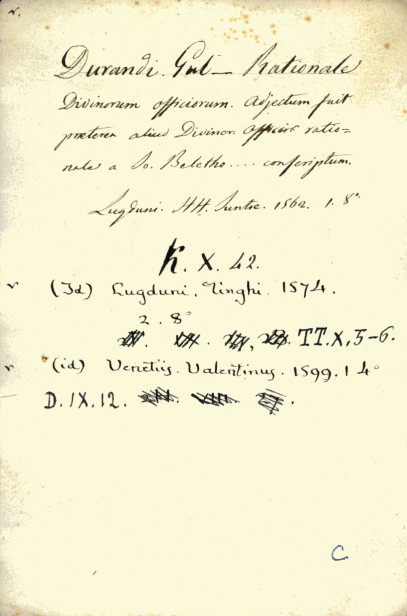 Durandi. Gul— Rationale
Divinorum officiorum. Adjectum fuit
præterea aliud Divinor. Officior. ratio=
nale a Jo. Beletho.... conscriptum.
Lugduni. HH. Juntæ. 1562. 1. 8°
K. X. 42.
(Id) Lugduni. Tinghi. 1574.
2. 8°
TT. X. 5-6.
(id) Venetiis. Valentinus. 1599. 1 4°
D. IX. 12.
C